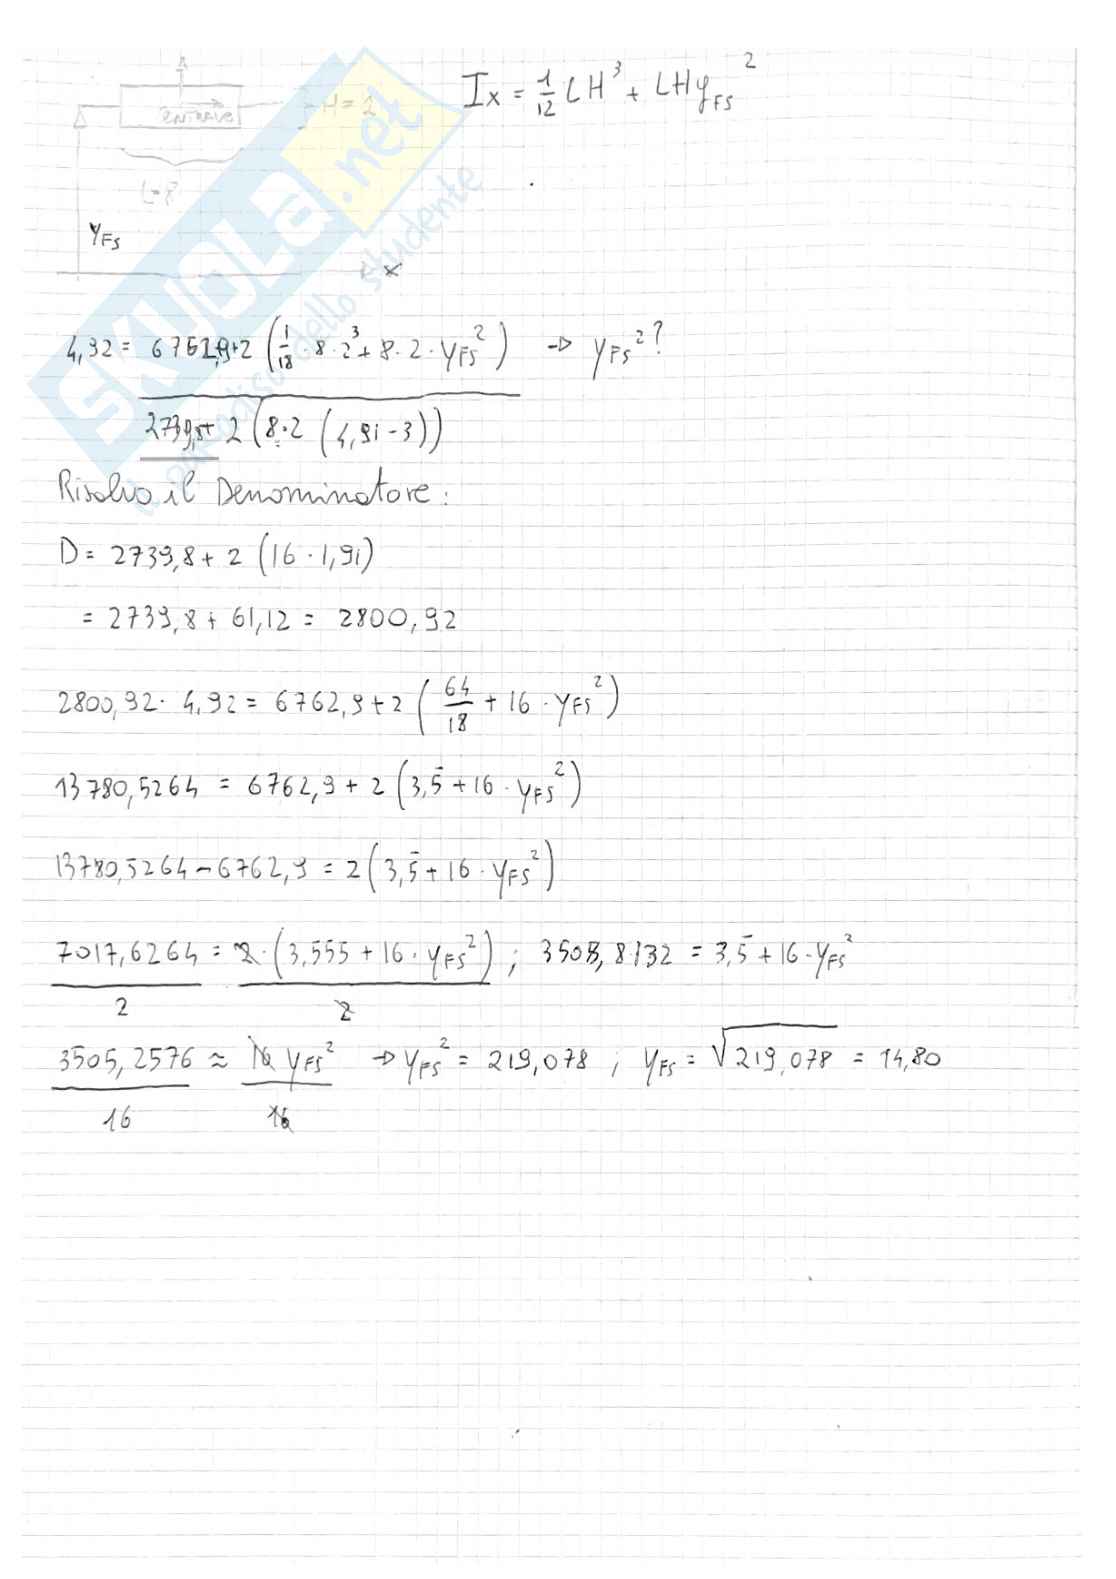 Ix = 1/12 LH³ + LHy_FS²
H = 2
ENTRAVE
L=8
y_FS
x
SKUOLA.net
il paradiso dello studente
4,92 = 6762,9+2 (1/18 · 8 · 2³ + 8 · 2 · y_FS²) → y_FS²?
2739,8+ 2 (8·2 (4,91-3))
Risolvo il Denominatore:
D = 2739,8 + 2 (16 · 1,91)
= 2739,8 + 61,12 = 2800,92
2800,92 · 4,92 = 6762,9 + 2 (64/18 + 16 · y_FS²)
13780,5264 = 6762,9 + 2 (3,5̅ + 16 · y_FS²)
13780,5264 - 6762,9 = 2 (3,5̅ + 16 · y_FS²)
7017,6264/2 = 2 · (3,555 + 16 · y_FS²)/2 ; 3508,8132 = 3,5̅ + 16 · y_FS²
3505,2576/16 ≈ 16 y_FS²/16 → y_FS² = 219,078 ; y_FS = √219,078 = 14,80